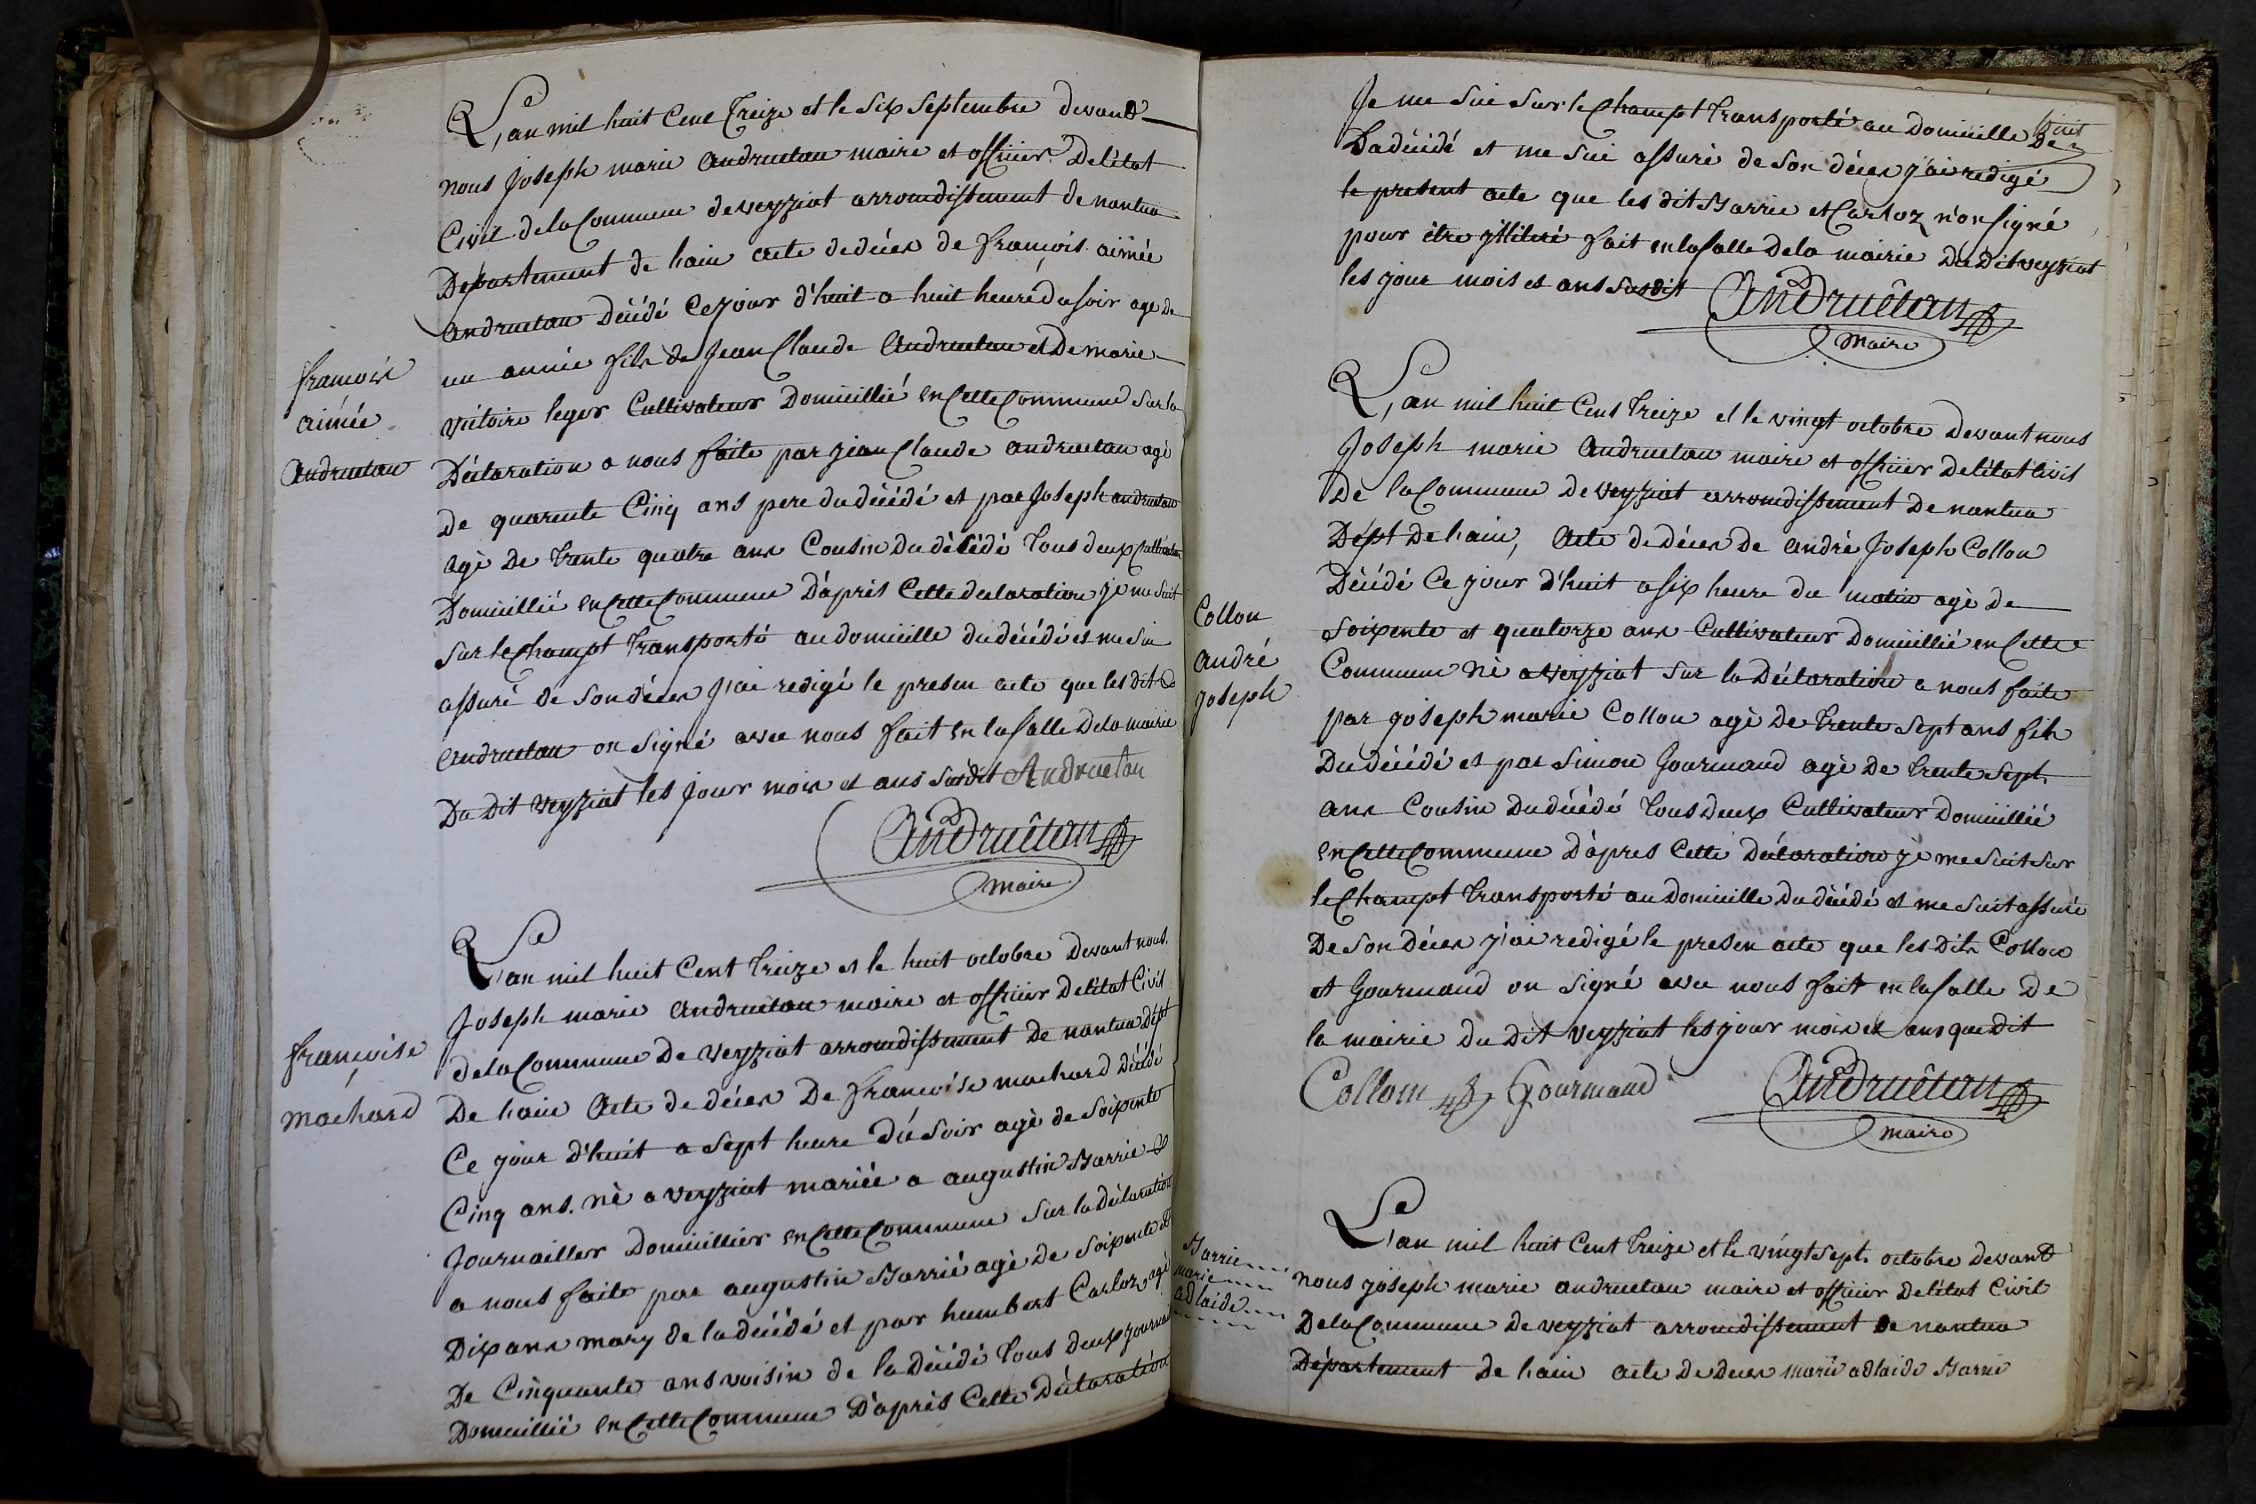 L'an mil huit Cent Treize et le Six Septembre devand
nous Joseph marie andruetan maire et officier Delétat
Civil dela Commune de veyziat arrondissement de nantua
Département de hain acte dedéces de françois aimée
andruetan Décidé Cejour d'huit a huit heure du soir age de
un année fils de Jean Claude andruetan et De marie
victoire leger Cultivateur Domicillié en Cette Commune Sur la
Déclaration a nous faite par jean Claude andruetan agé
de quarente Cinq ans pere du décidé et par Joseph andruetan
agé De trente quatre ans Cousin Du décidé Tous deux Cultivateur
Domicillié en Cette Commune D'aprés Cette declaration je me suit
sur le Champt transporté au domicille du décidé et me sui
assuré de son déces j'ai redigé le presen acte que les dit
andruetan on signé avec nous fait en la salle De la mairie
Du Dit veyziat les jour mois et ans susdit Andruetan
Andruêtan
Maire
françois
aimée
andruetan
L'an mil huit Cent treize et le huit octobre devant nous
Joseph marie andruetan maire et officier Delétat Civil
dela Commune De veyziat arrondissement De nantua dépt
De hain acte de déces De françoise machard Décidé
Ce jour d'huit a sept heure du soir agé de Soixente
Cinq ans. né a veyziat mariée a augustin Harrie
journaillier Domicillier en Cette Commune sur la déclaration
a nous faite par augustin Harrié agé de Soixente et
Dix ans mary de la décidé et par humbert Carloz agé
De Cinquante ans voisin de la Décidé Tous deux journai
Domicillié en Cette Commune D'aprés Cette Déclaration
françoise
machard
huit
Je me sui sur le Champt transporté au Domicille De
La décidé et me sui assuré de son déces j'ai redigé
le present acte que les dit Harrie et Carloz n'on signé
pour être illiteré fait en la salle dela mairie Du Dit veyziat
les jour mois et ans susdit
Andruêtan
Maire
L'an mil huit Cent Treize et le vingt octobre Devant nous
Joseph marie andruetan maire et officier Delétat Civil
De la Commune De veyziat arrondissement De nantua
Dépt De hain, acte de déces de andré Joseph Collon
Décidé Ce jour d'huit a six heure du matin agé de
Soixente et quatorze ans Cultivateur Domicillié en Cette
Commune né a veyziat sur la Déclaration a nous faite
par joseph marie Collon agé De trente sept ans fils
Du décidé et par simon Gourmand agé De trente sept
ans Cousin du décidé Tous Deux Cultivateur Domicillié
en Cette Commune D'apres Cette Déclaration je me suit sur
le Champt transporté au Domicille Du décidé et me suit assuré
De son Déces j'ai redigé le presen acte que les Dits Collon
et Gourmand on signé avec nous fait en la salle De
la mairie Du Dit veyziat les jour mois et ans que dit
Collom Gourmand
Andruêtan
Maire
Collon
andré
joseph
L'an mil huit Cent Treize et le vingt sept octobre devant
nous joseph marie andruetan maire et officier Delétat Civil
De la Commune De veyziat arrondissement De nantua
Département De hain acte De deces marie adlaide Harrie
Harrie
marie
adlaide